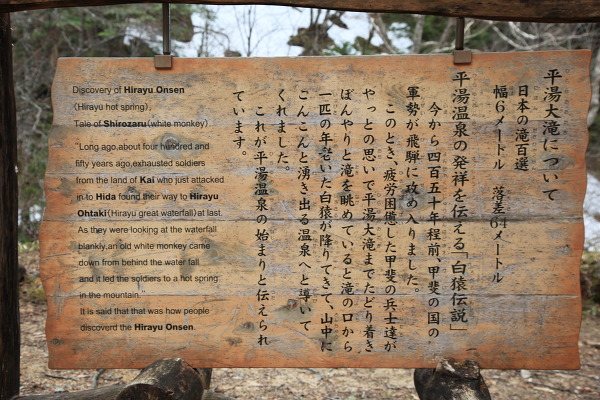 平湯大滝について
日本の滝百選
幅6メートル　落差64メートル
平湯温泉の発祥を伝える「白猿伝説」
今から四百五十年程前、甲斐の国の
軍勢が飛騨に攻め入りました。
このとき、疲労困憊した甲斐の兵士達が
やっとの思いで平湯大滝までたどり着き
ぼんやりと滝を眺めていると滝の口から
一匹の年老いた白猿が降りてきて、山中に
こんこんと湧き出る温泉へと導いて
くれました。
これが平湯温泉の始まりと伝えられ
ています。
Discovery of Hirayu Onsen
(Hirayu hot spring),
Tale of Shirozaru(white monkey)
"Long ago,about four hundred and
fifty years ago,exhausted soldiers
from the land of Kai who just attacked
in to Hida found their way to Hirayu
Ohtaki(Hirayu great waterfall)at last.
As they were looking at the waterfall
blankly,an old white monkey came
down from behind the water fall
and it led the soldiers to a hot spring
in the mountain."
It is said that that was how people
discoverd the Hirayu Onsen.